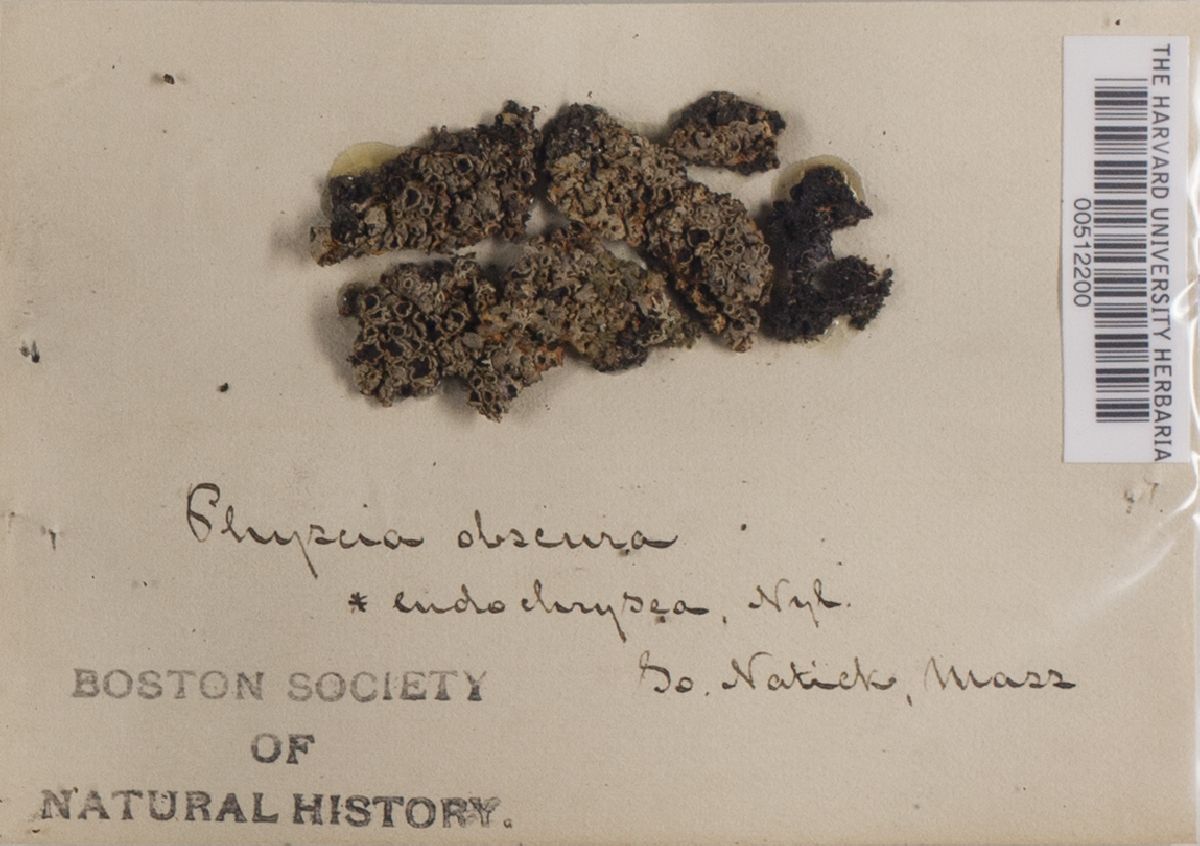 THE HARVARD UNIVERSITY HERBARIA
00512200
Physcia obscura
* endochrysea, Nyl.
So. Natick, Mass
BOSTON SOCIETY
OF
NATURAL HISTORY.